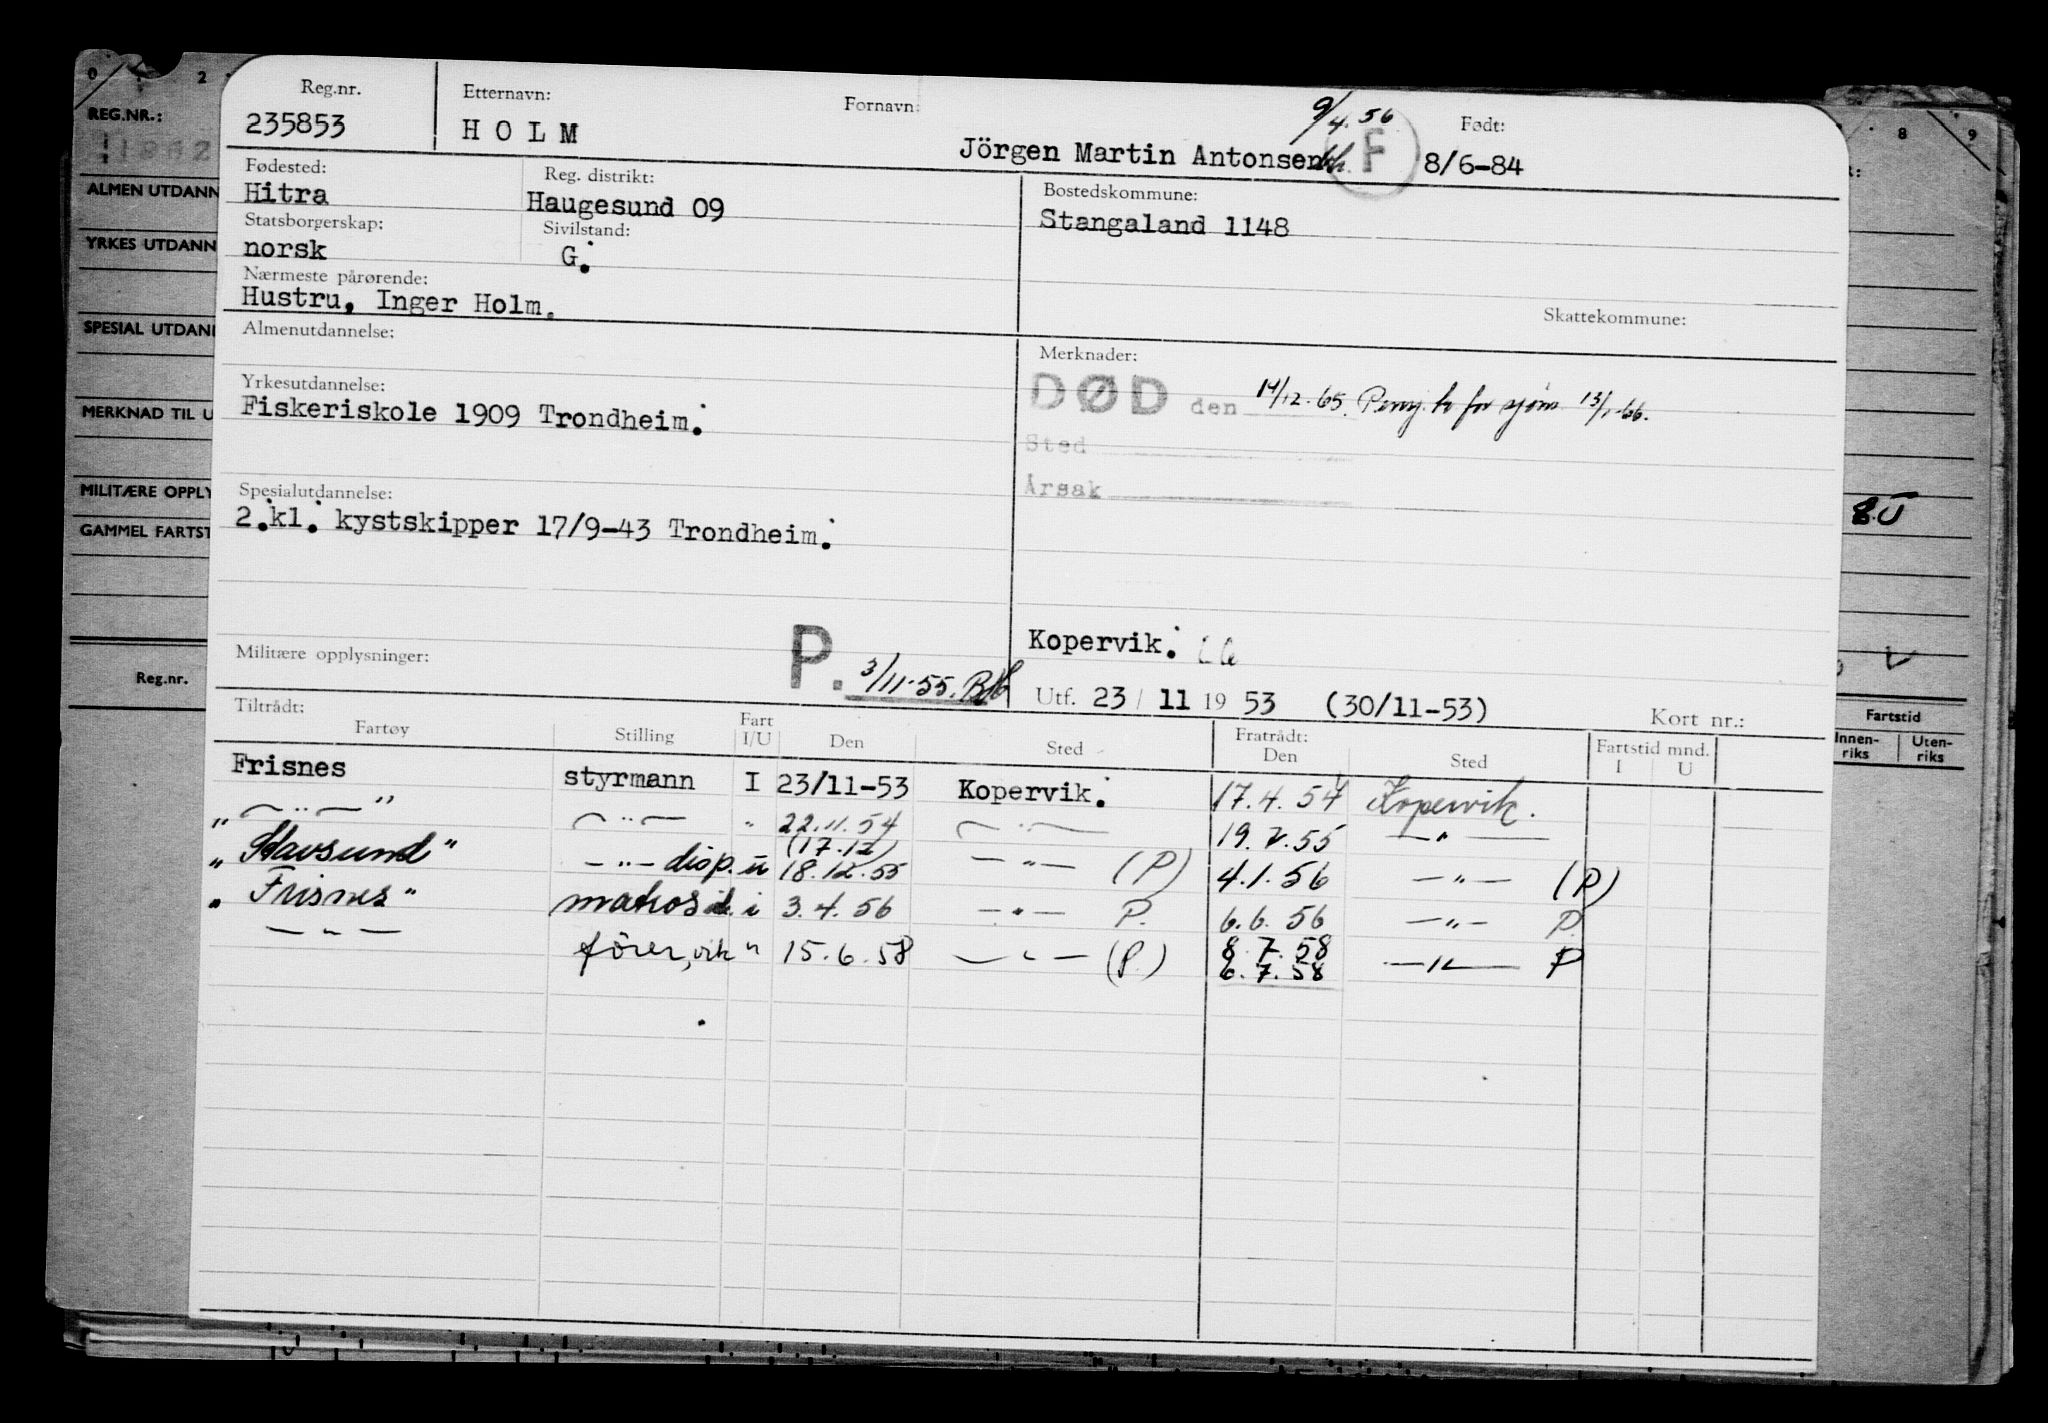 Reg.nr. Etternavn: Fornavn: 9/4.56 Født:
235853 HOLM Jörgen Martin Antonsen F 8/6-84
Fødested: Reg. distrikt: Bostedskommune:
Hitra Haugesund 09 Stangaland 1148
Statsborgerskap: Sivilstand:
norsk G.
Nærmeste pårørende:
Hustru, Inger Holm. Skattekommune:
Almenutdannelse: Merknader:
DØD den 14/12.65. Pensj. tr for sjøm 13/1-66.
Yrkesutdannelse:
Fiskeriskole 1909 Trondheim.
Sted
Årsak
Spesialutdannelse:
2.kl. kystskipper 17/9-43 Trondheim.
Kopervik.
Militære opplysninger: P. 3/11-55.
Utf. 23/11 1953 (30/11-53) Kort nr.:
Tiltrådt: Fratrådt:
Fartøy Stilling Fart I/U Den Sted Den Sted Fartstid mnd. I U
Frisnes styrmann I 23/11-53 Kopervik. 17.4.54 Kopervik.
" — " — " — " — " 22.11.54 — " — 19.2.55 — " —
(17.12)
" Stavsund " — " — disp. u 18.12.55 — " — (P) 4.1.56 — " — (P)
" Frisnes " matros d. i 3.4.56 — " — P. 6.6.56 — " — P.
— " — förer, vik " 15.6.58 — " — (P.) 8.7.58 — " — P
6.7.58
0 2 8 9
REG.NR.:
ALMEN UTDANN
YRKES UTDANN
SPESIAL UTDAN
MERKNAD TIL U
MILITÆRE OPPLY
GAMMEL FARTST
Reg.nr.
Fartstid
Innen-riks Uten-riks